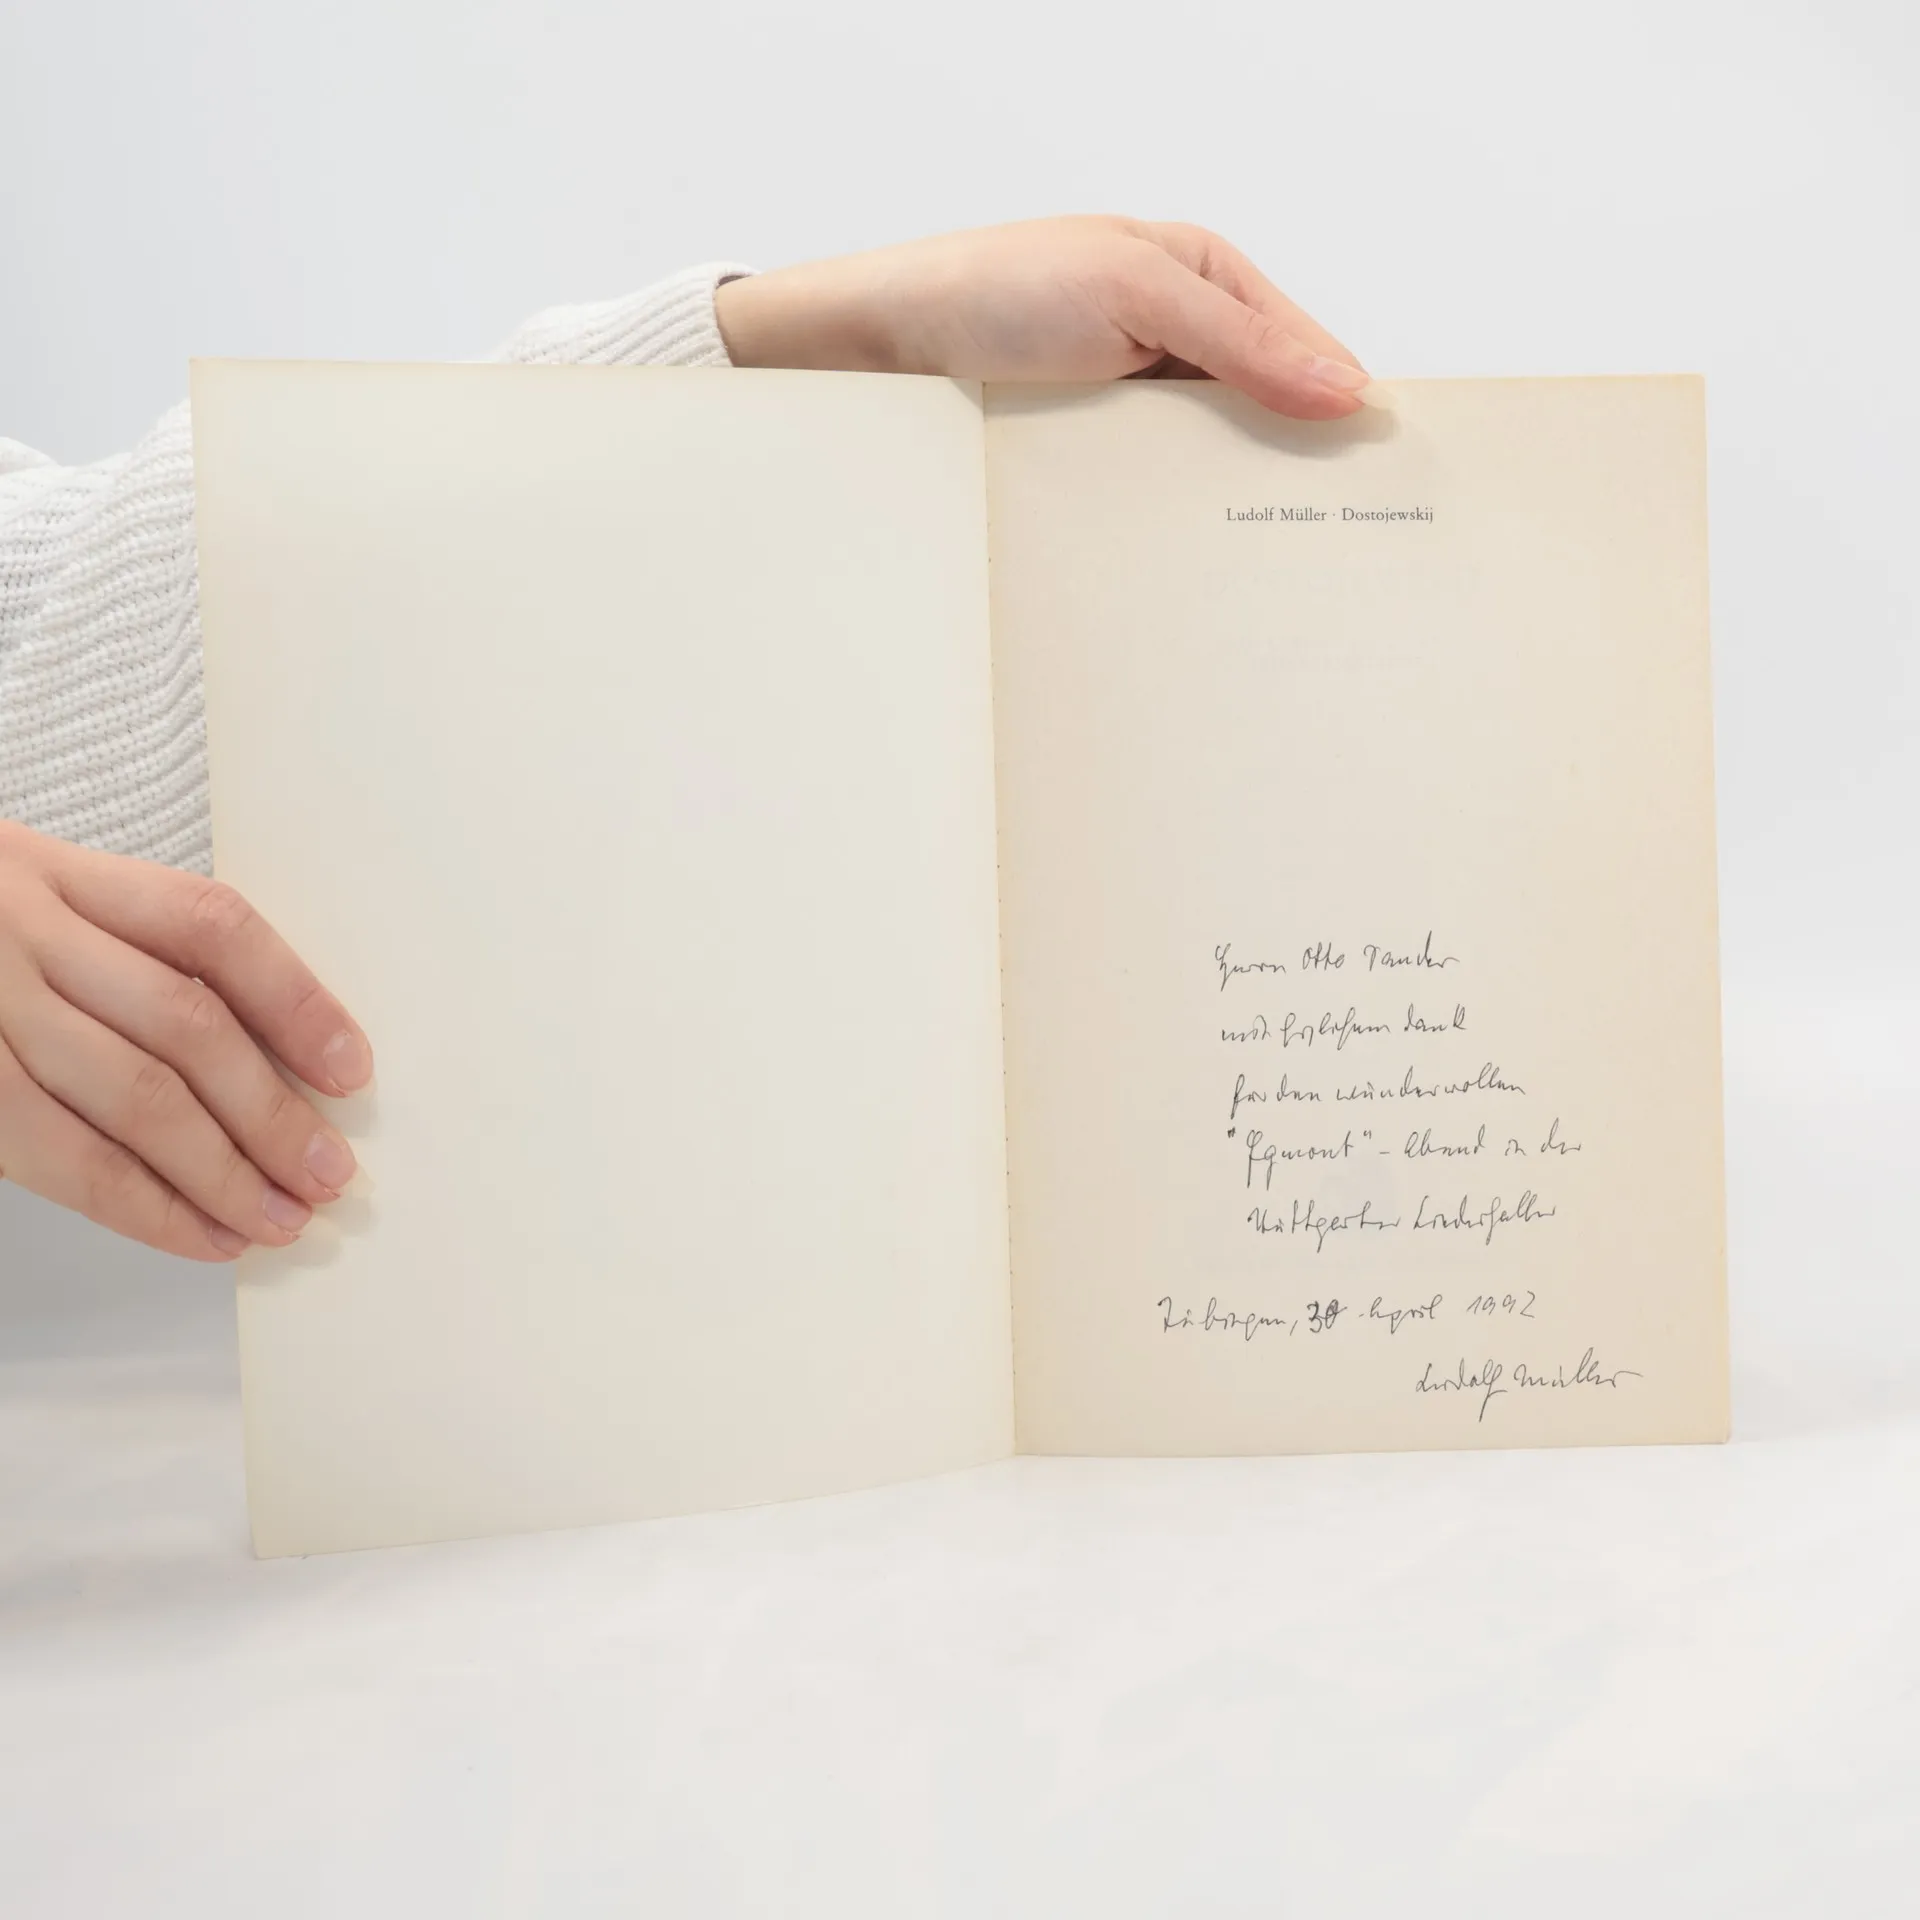 Ludolf Müller · Dostojewskij
Herrn Otto Sander
mit herzlichem Dank
für den wundervollen
"Egmont" - Abend in der
Stuttgarter Liederhalle
Tübingen, 30 April 1992
Ludolf Müller